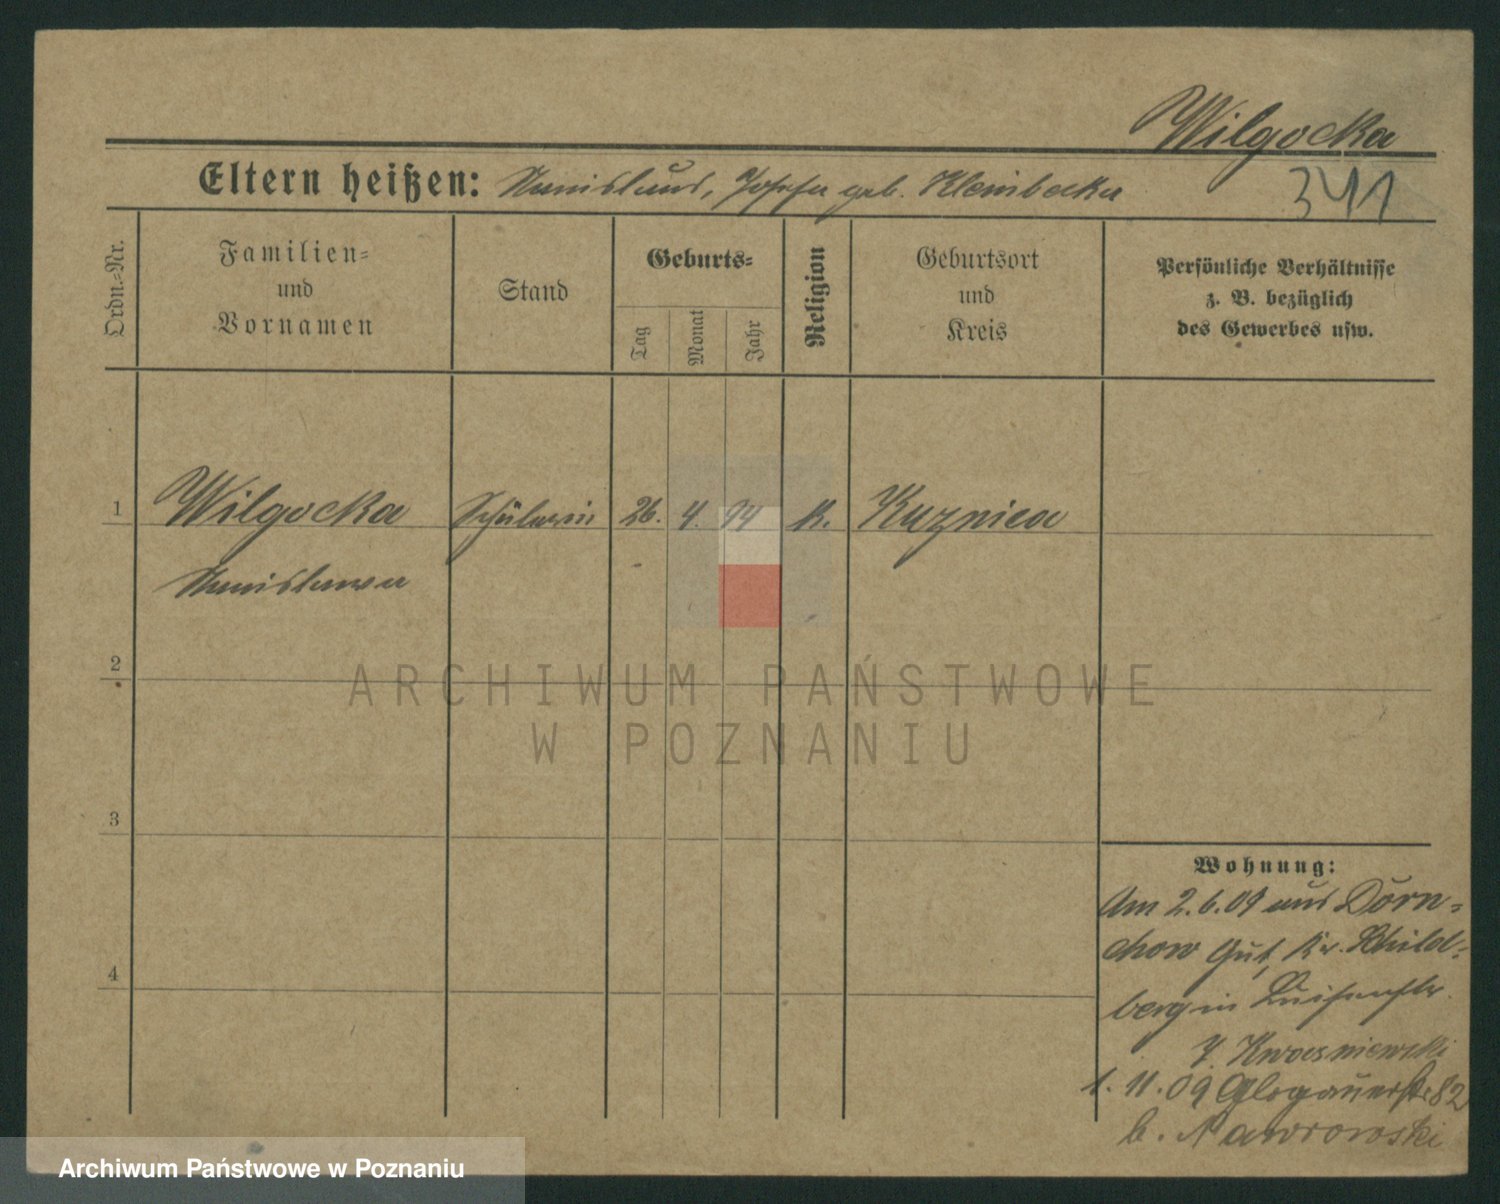 Wilgocka
Eltern heißen: Stanislaus, Josefa geb. Kleinbecka
341
Ordn.-Nr.
Familien-
und
Vornamen
Stand
Geburts-
Tag
Monat
Jahr
Religion
Geburtsort
und
Kreis
Persönliche Verhältnisse
z. B. bezüglich
des Gewerbes usw.
1
Wilgocka Schülerin 26. 4. 94 K. Kuznica
Stanislawa
2
ARCHIWUM PAŃSTWOWE
W POZNANIU
3
4
Wohnung:
Am 2.6.09 aus Dorn-
chow Gut, Kr. Schild-
berg in Luisenstr.
7. Kwasniewski
1. 11. 09 Glogauerstr 82
b. Nawrowski
Archiwum Państwowe w Poznaniu